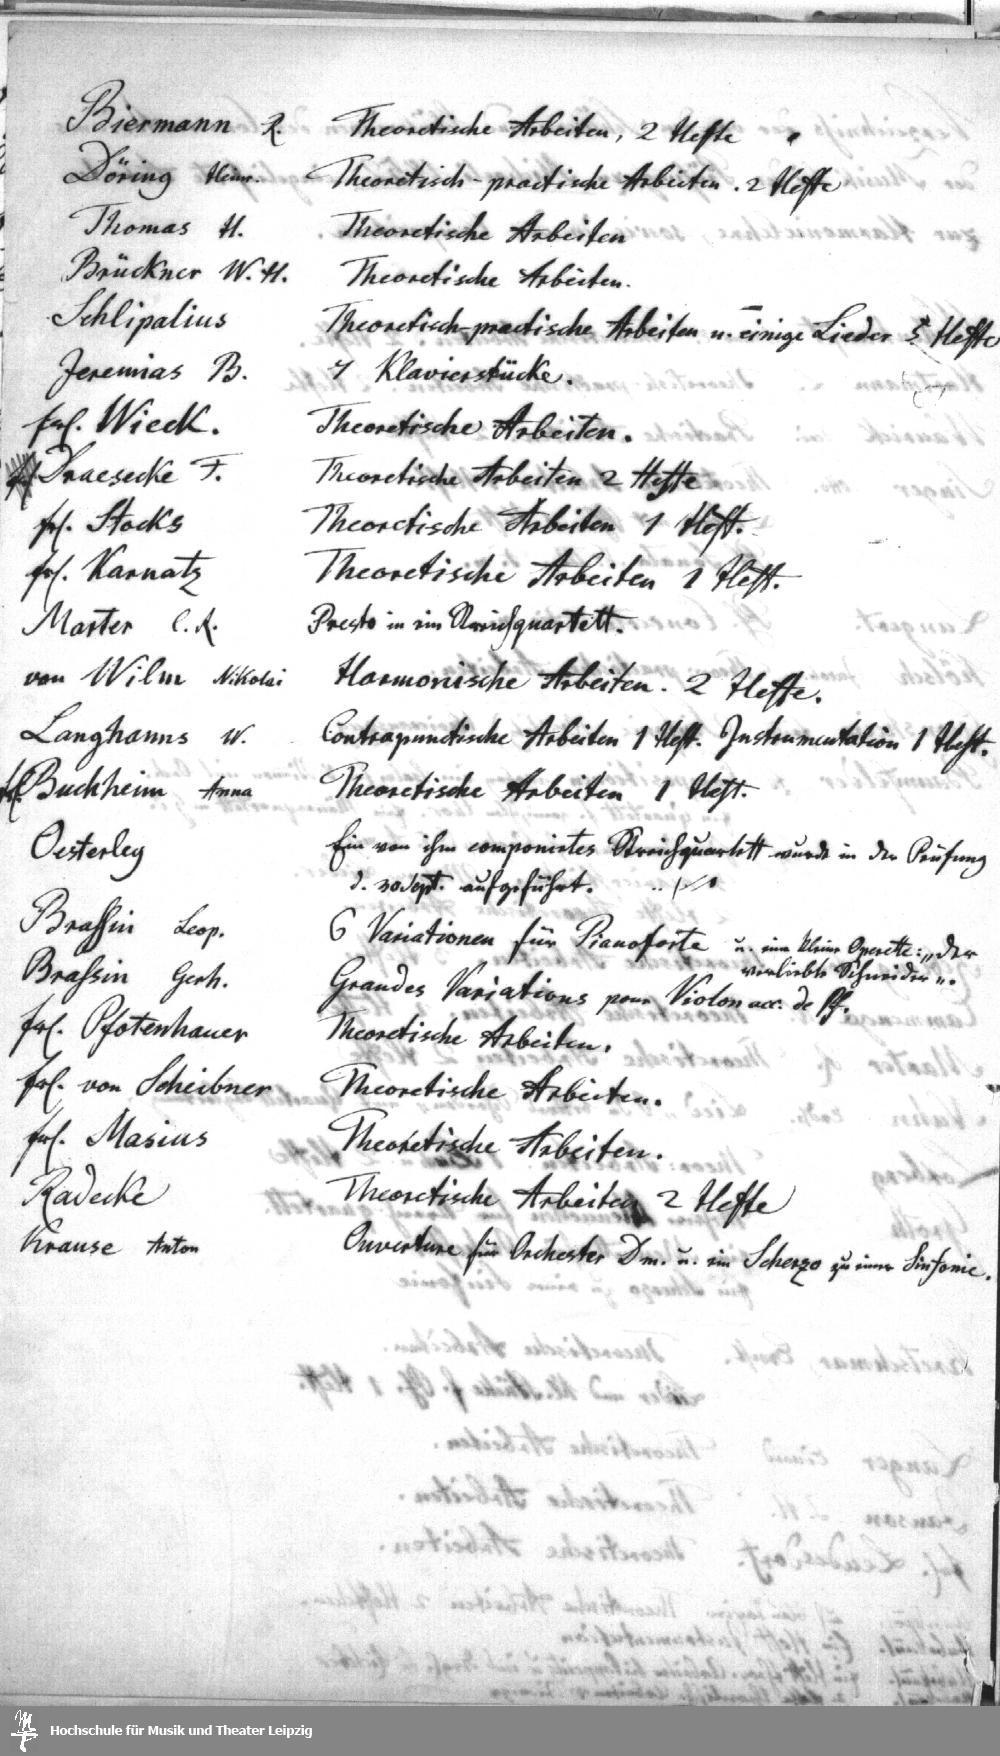 Biermann R. Theoretische Arbeiten, 2 Hefte
Döring Heinr. Theoretisch-practische Arbeiten. 2 Hefte
Thomas H. Theoretische Arbeiten
Brückner W. H. Theoretische Arbeiten.
Schlipalius Theoretisch-practische Arbeiten u. einige Lieder 5 Hefte
Jeremias B. 7 Klavierstücke.
frl. Wieck. Theoretische Arbeiten.
Draesecke F. Theoretische Arbeiten 2 Hefte
frl. Stocks Theoretische Arbeiten 1 Heft.
frl. Karnatz Theoretische Arbeiten 1 Heft.
Marter C. R. Presto in ein Streichquartett.
von Wilm Nikolai Harmonische Arbeiten. 2 Hefte.
Langhanns W. Contrapunctische Arbeiten 1 Heft. Instrumentation 1 Heft.
frl. Buchheim Anna Theoretische Arbeiten 1 Heft.
Oesterley Ein von ihm componirtes Streichquartett wurde in der Prüfung
d. 30 Sept. aufgeführt.
Brassin Leop. 6 Variationen für Pianoforte u. eine kleine Operette: „der
verliebte Schneider“.
Brassin Gerh. Grandes Variations pour Violon acc. de Pf.
frl. Pfotenhauer Theoretische Arbeiten.
frl. von Scheibner Theoretische Arbeiten.
frl. Masius Theoretische Arbeiten.
Radecke Theoretische Arbeiten 2 Hefte
Krause Anton Ouverture für Orchester Dm. u. ein Scherzo zu einer Sinfonie.
Hochschule für Musik und Theater Leipzig